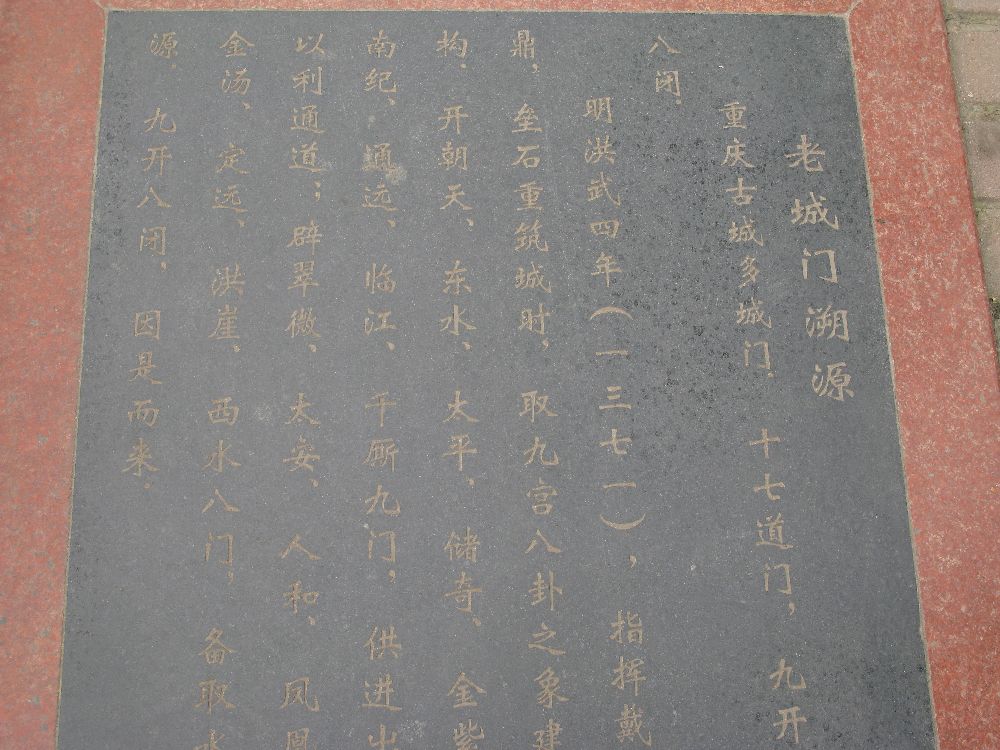 老城门溯源
重庆古城多城门．十七道门，九开
八闭．
明洪武四年（一三七一），指挥戴
鼎，垒石重筑城时，取九宫八卦之象建
构．开朝天、东水、太平、储奇、金紫
南纪、通远、临江、千厮九门，供进出
以利通道；辟翠微、太安、人和、凤凰
金汤、定远、洪崖、西水八门，备取水
源．九开八闭，因是而来．